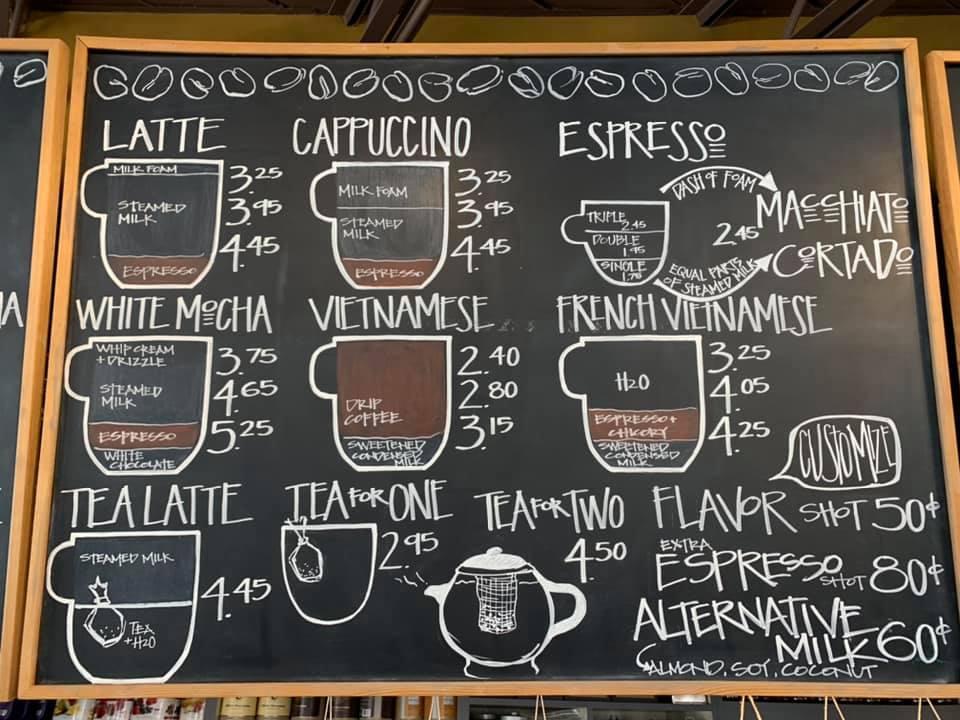 LATTE
MILK FOAM
STEAMED
MILK
ESPRESSO
3.25
3.95
4.45
CAPPUCCINO
MILK FOAM
STEAMED
MILK
ESPRESSO
3.25
3.95
4.45
ESPRESSO
TRIPLE
2.45
DOUBLE
1.95
SINGLE
DASH OF FOAM
MACCHIATO
2.45
CORTADO
EQUAL PARTS
OF STEAMED MILK
WHITE MOCHA
WHIP CREAM
+ DRIZZLE
STEAMED
MILK
ESPRESSO
WHITE
CHOCOLATE
3.75
4.65
5.25
VIETNAMESE
DRIP
COFFEE
SWEETENED
CONDENSED
MILK
2.40
2.80
3.15
FRENCH VIETNAMESE
H2O
ESPRESSO +
CHICORY
SWEETENED
CONDENSED
MILK
3.25
4.05
4.25
TEA LATTE
STEAMED MILK
TEA
+ H2O
4.45
TEA FOR ONE
2.95
TEA FOR TWO
4.50
CUSTOMIZE
FLAVOR SHOT 50¢
EXTRA
ESPRESSO SHOT 80¢
ALTERNATIVE
MILK 60¢
ALMOND, SOY, COCONUT